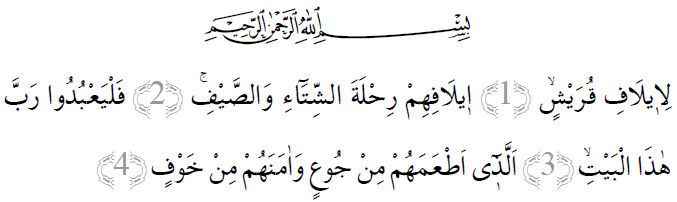 بِسْمِ اللّٰهِ الرَّحْمٰنِ الرَّحِيمِ
لِا۪يلَافِ قُرَيْشٍۙ ﴿1﴾ ا۪يلَافِهِمْ رِحْلَةَ الشِّتَٓاءِ وَالصَّيْفِۚ ﴿2﴾ فَلْيَعْبُدُوا رَبَّ
هٰذَا الْبَيْتِۙ ﴿3﴾ اَلَّذ۪ٓي اَطْعَمَهُمْ مِنْ جُوعٍ وَاٰمَنَهُمْ مِنْ خَوْفٍ ﴿4﴾